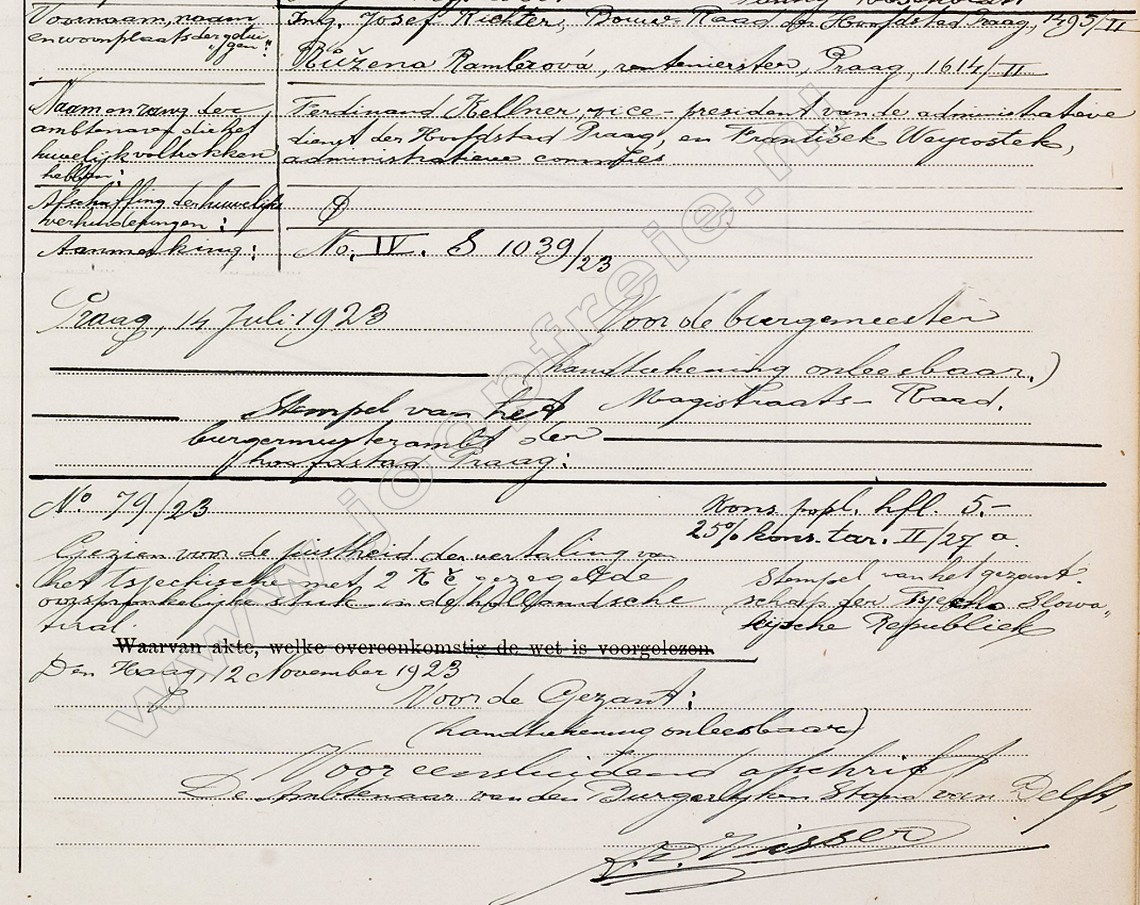 Voornaam, naam
en woonplaats der getui-
"gen":
Ing. Josef Richter, Bouw-Raad der Hoofdstad Praag, 1495/II
Růžena Ramlerová, rentenierster, Praag, 1614/II
Naam en rang der
ambtenaren die het
huwelijk voltrokken
hebben:
Ferdinand Kellner, vice-president van de administratieve
dienst der Hoofdstad Praag, en František Weyrostek,
administratieve commies
Afschaffing der huwelijks
verhinderingen:
Aanmerking:
No. IV. S 1039/23
Praag, 14 Juli 1923
Voor de burgemeester
(handtekening onleesbaar.)
Stempel van het
Magistraats-Raad.
burgemeesterambt der
hoofdstad Praag:
No 79/23
Kons. popl. hfl. 5.-
25% kons. tar. II/27 a.
Gezien voor de juistheid der vertaling van
het tsjechische met 2 Kč gezegelde
oorspronkelijke stuk in de hollandsche
taal.
Stempel van het gezant-
schap der Tsjecho Slowa-
kijsche Republiek
Waarvan akte, welke overeenkomstig de wet is voorgelezen.
Den Haag, 12 November 1923
Voor de Gezant:
(handtekening onleesbaar)
Voor eensluidend afschrift
De Ambtenaar van den Burgerlijken Stand van Delft,
Visser
www.joopfreie.nl